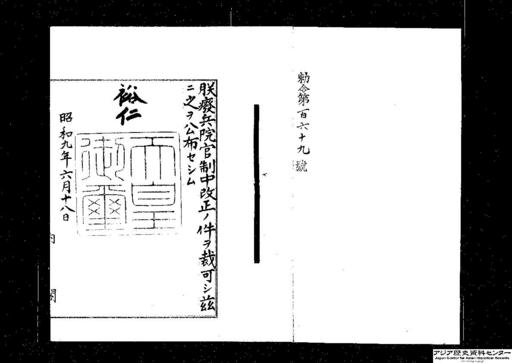 勅令第百六十九號
朕廢兵院官制中改正ノ件ヲ裁可シ茲
ニ之ヲ公布セシム
裕仁
天皇御璽
昭和九年六月十八日
内閣
アジア歴史資料センター
Japan Center for Asian Historical Records